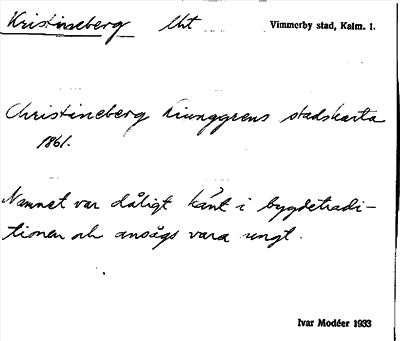 Kristineberg lht Vimmerby stad, Kalm. 1.
Christineberg Ljunggrens stadskarta
1861.
Namnet var dåligt känt i bygdetradi-
tionen och ansågs vara ungt.
Ivar Modéer 1933